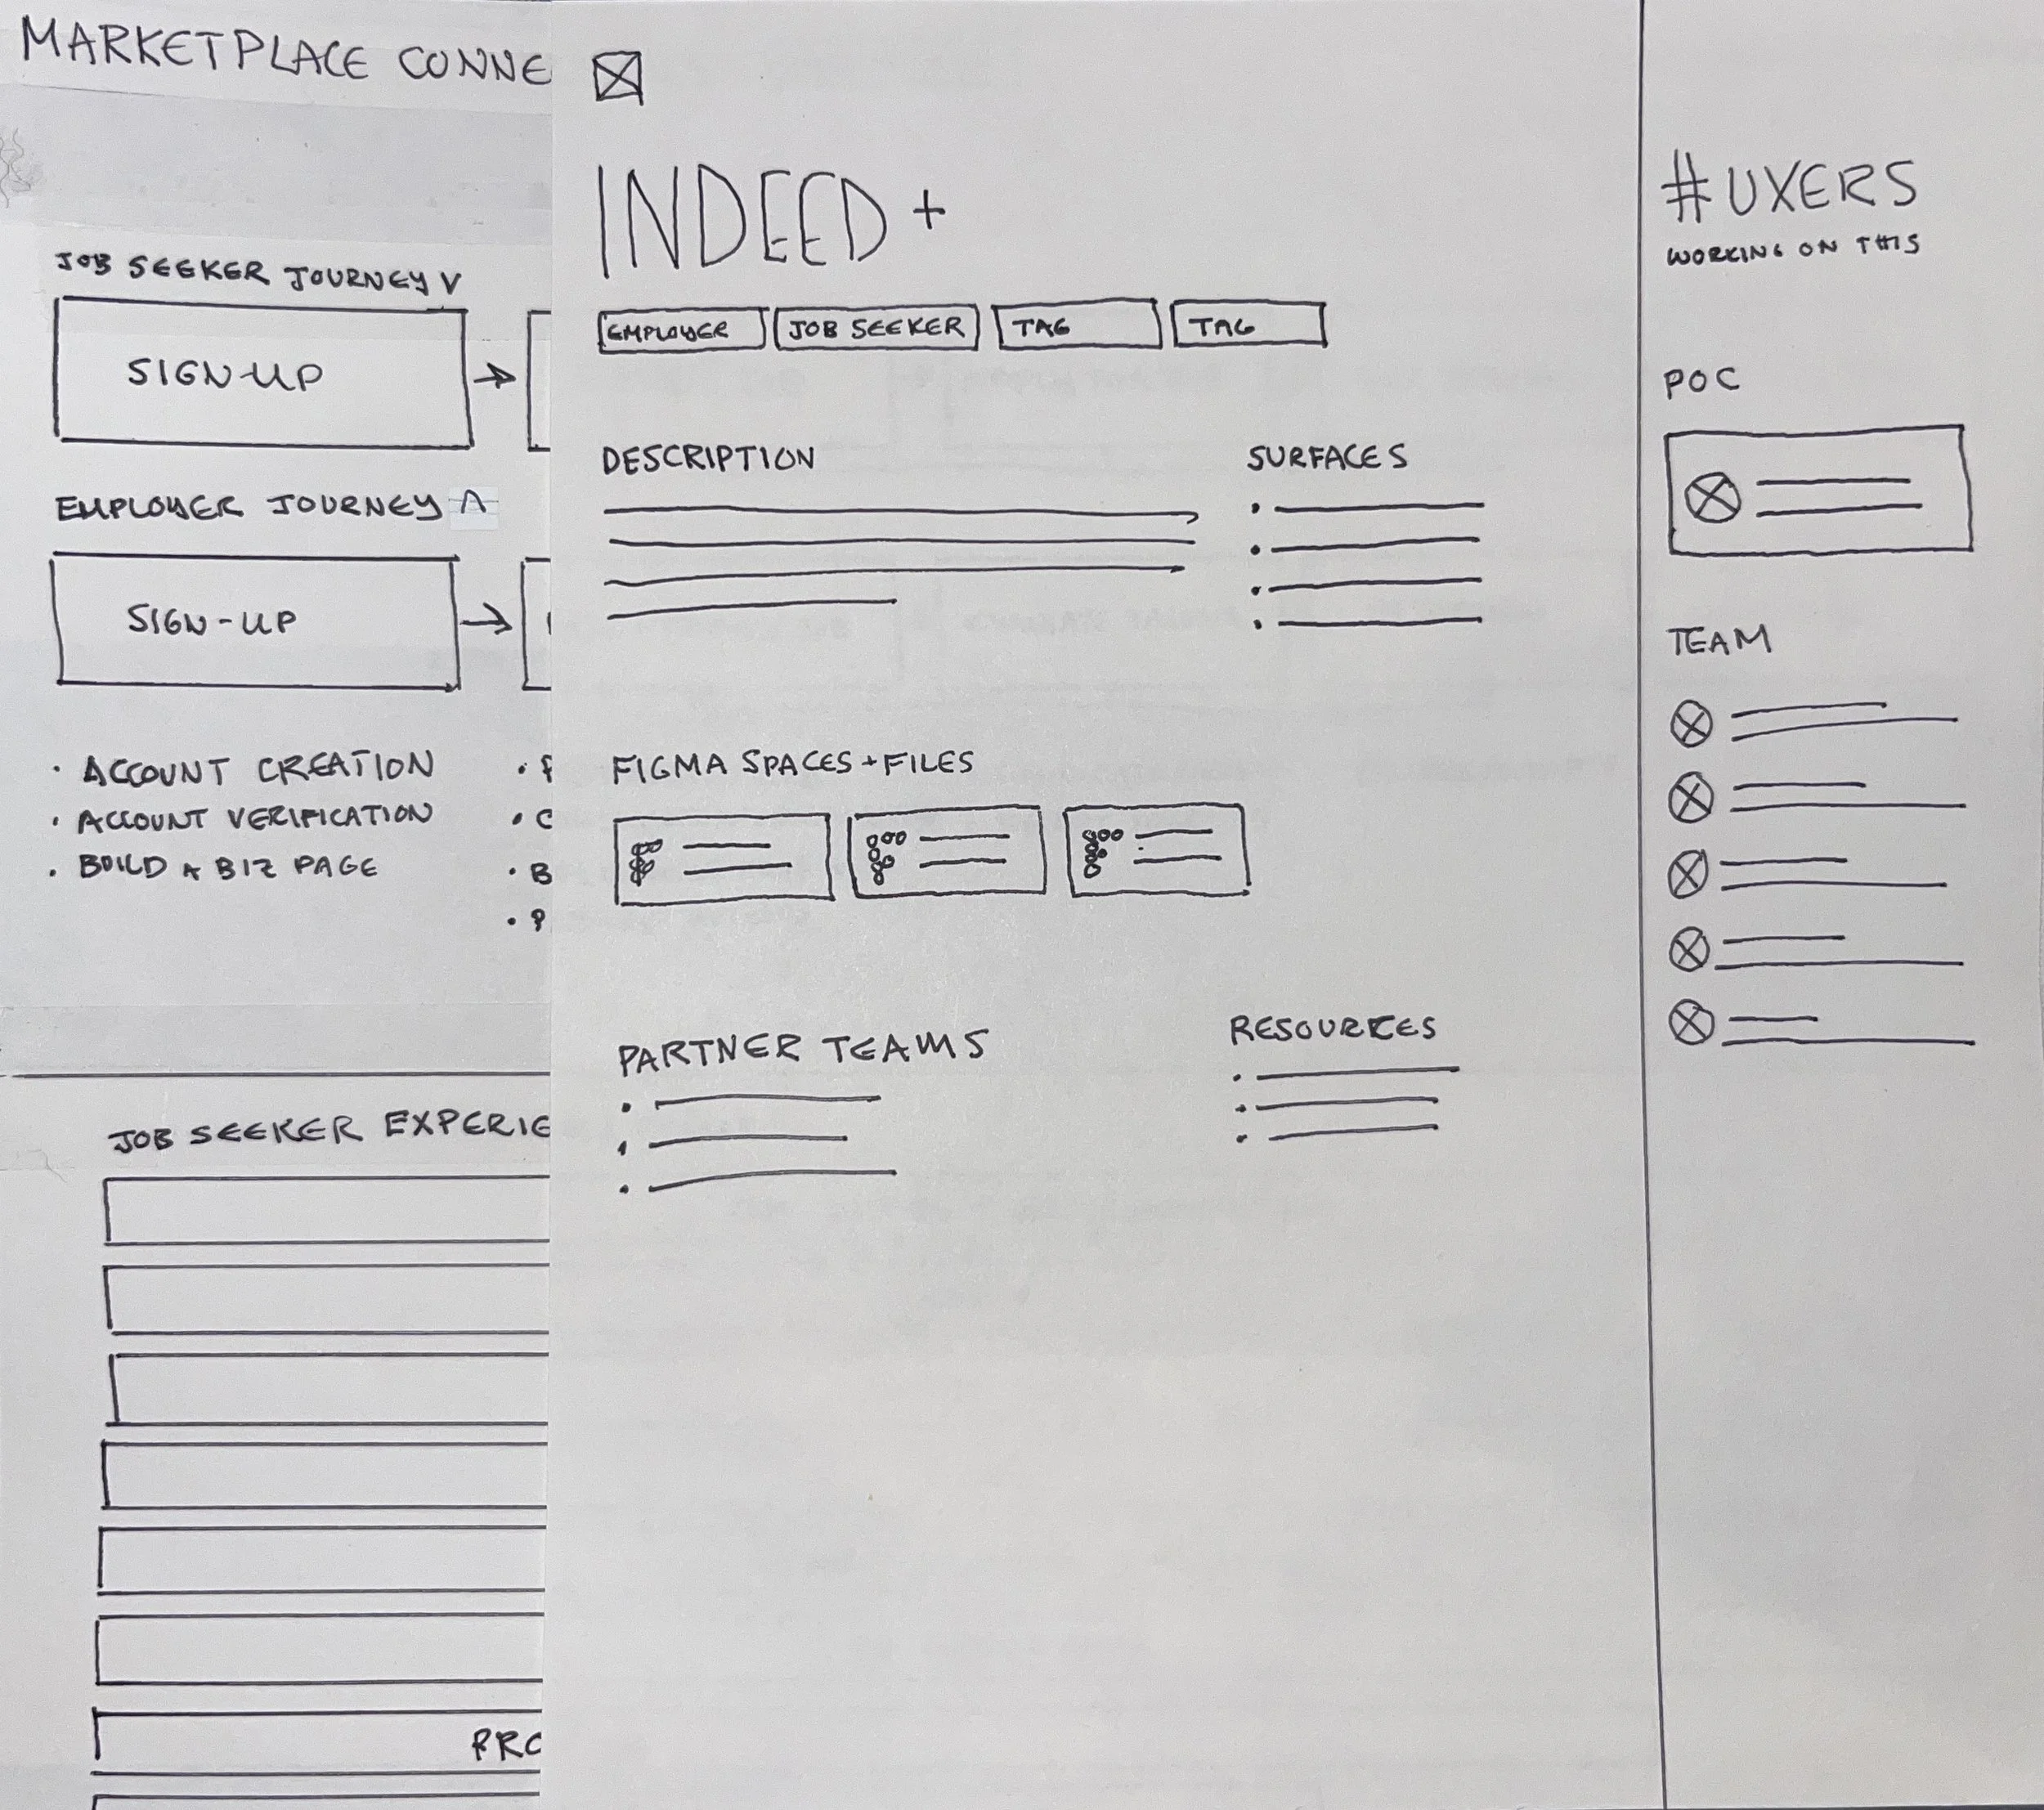 MARKETPLACE CONNE
JOB SEEKER JOURNEY V
SIGN-UP
EMPLOYER JOURNEY Λ
SIGN-UP
· ACCOUNT CREATION
· ACCOUNT VERIFICATION
· BUILD A BIZ PAGE
· C
· B
· P
JOB SEEKER EXPERIE
PRO
INDEED+
EMPLOYER
JOB SEEKER
TAG
TAG
DESCRIPTION
SURFACES
FIGMA SPACES + FILES
PARTNER TEAMS
RESOURCES
#UXERS
WORKING ON THIS
POC
TEAM